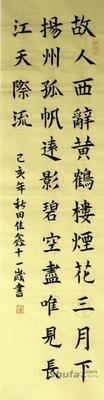 故人西辭黃鶴樓煙花三月下
揚州孤帆遠影碧空盡唯見長
江天際流
己亥年秋田佳鑫十一歲書